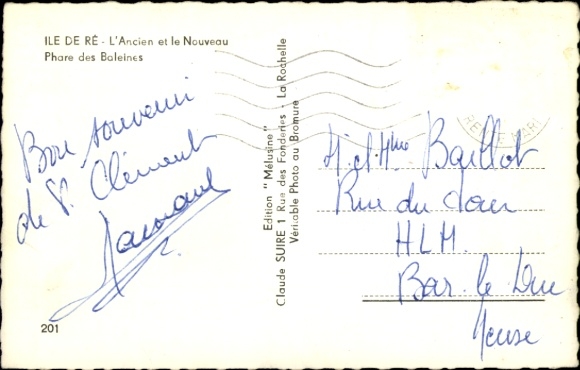 ILE DE RÉ - L'Ancien et le Nouveau
Phare des Baleines
Bon souvenir
de St Clément
201
Edition "Mélusine"
Claude SUIRE 1 Rue des Fonderies - La Rochelle
Véritable Photo au Bromure
M. et Mme Baillot
Rue du
HLM.
Bar-le-Duc
Meuse